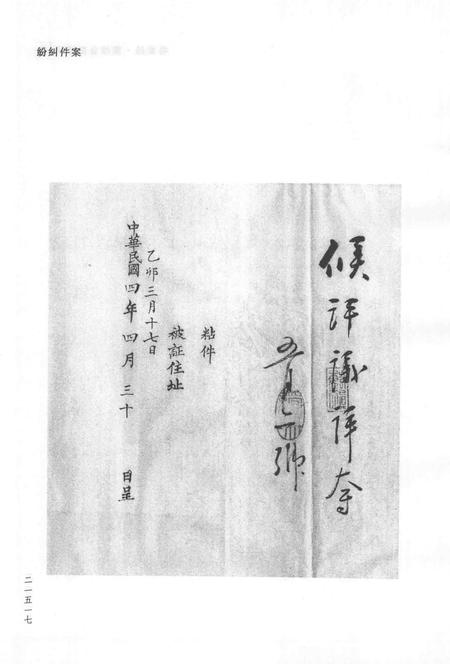 紛糾件案
候評議詳奪
粘件
被証住址
乙卯三月十七日
中華民國四年四月三十日呈
二一五一七